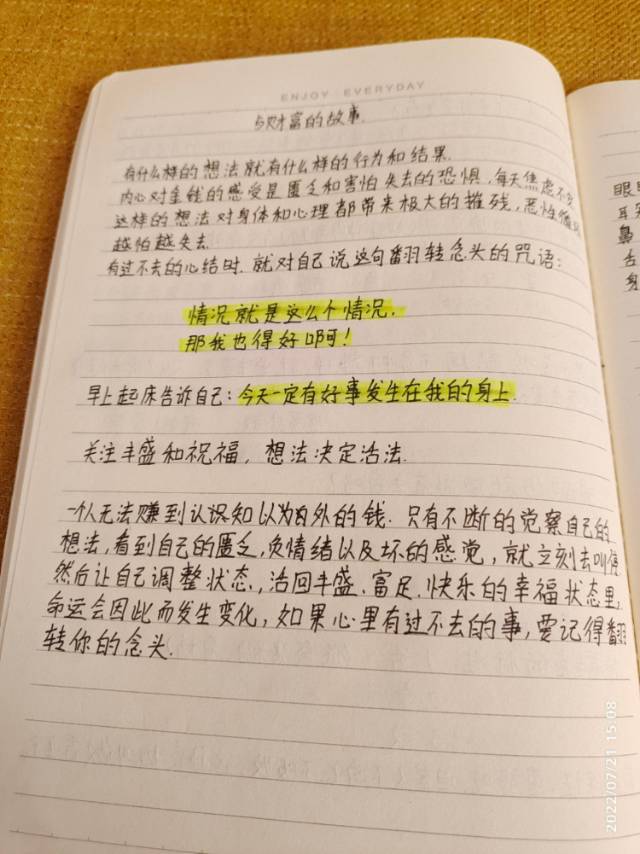 ENJOY EVERYDAY
与财富的故事.
有什么样的想法就有什么样的行为和结果.
内心对金钱的感受是匮乏和害怕失去的恐惧,每天焦虑不
这样的想法对身体和心理都带来极大的摧残,恶性循环
越怕越失去.
有过不去的心结时.就对自己说这句翻转念头的咒语:
情况就是这么个情况,
那我也得好啊!
早上起床告诉自己:今天一定有好事发生在我的身上.
关注丰盛和祝福,想法决定活法.
一个人无法赚到认识知以为自外的钱.只有不断的觉察自己的
想法,看到自己的匮乏,负情绪以及坏的感觉,就立刻去叫停,
然后让自己调整状态,活回丰盛.富足.快乐的幸福状态里,
命运会因此而发生变化,如果心里有过不去的事,要记得翻
转你的念头.
眼
耳
鼻
舌
身
2022/07/21 15:08